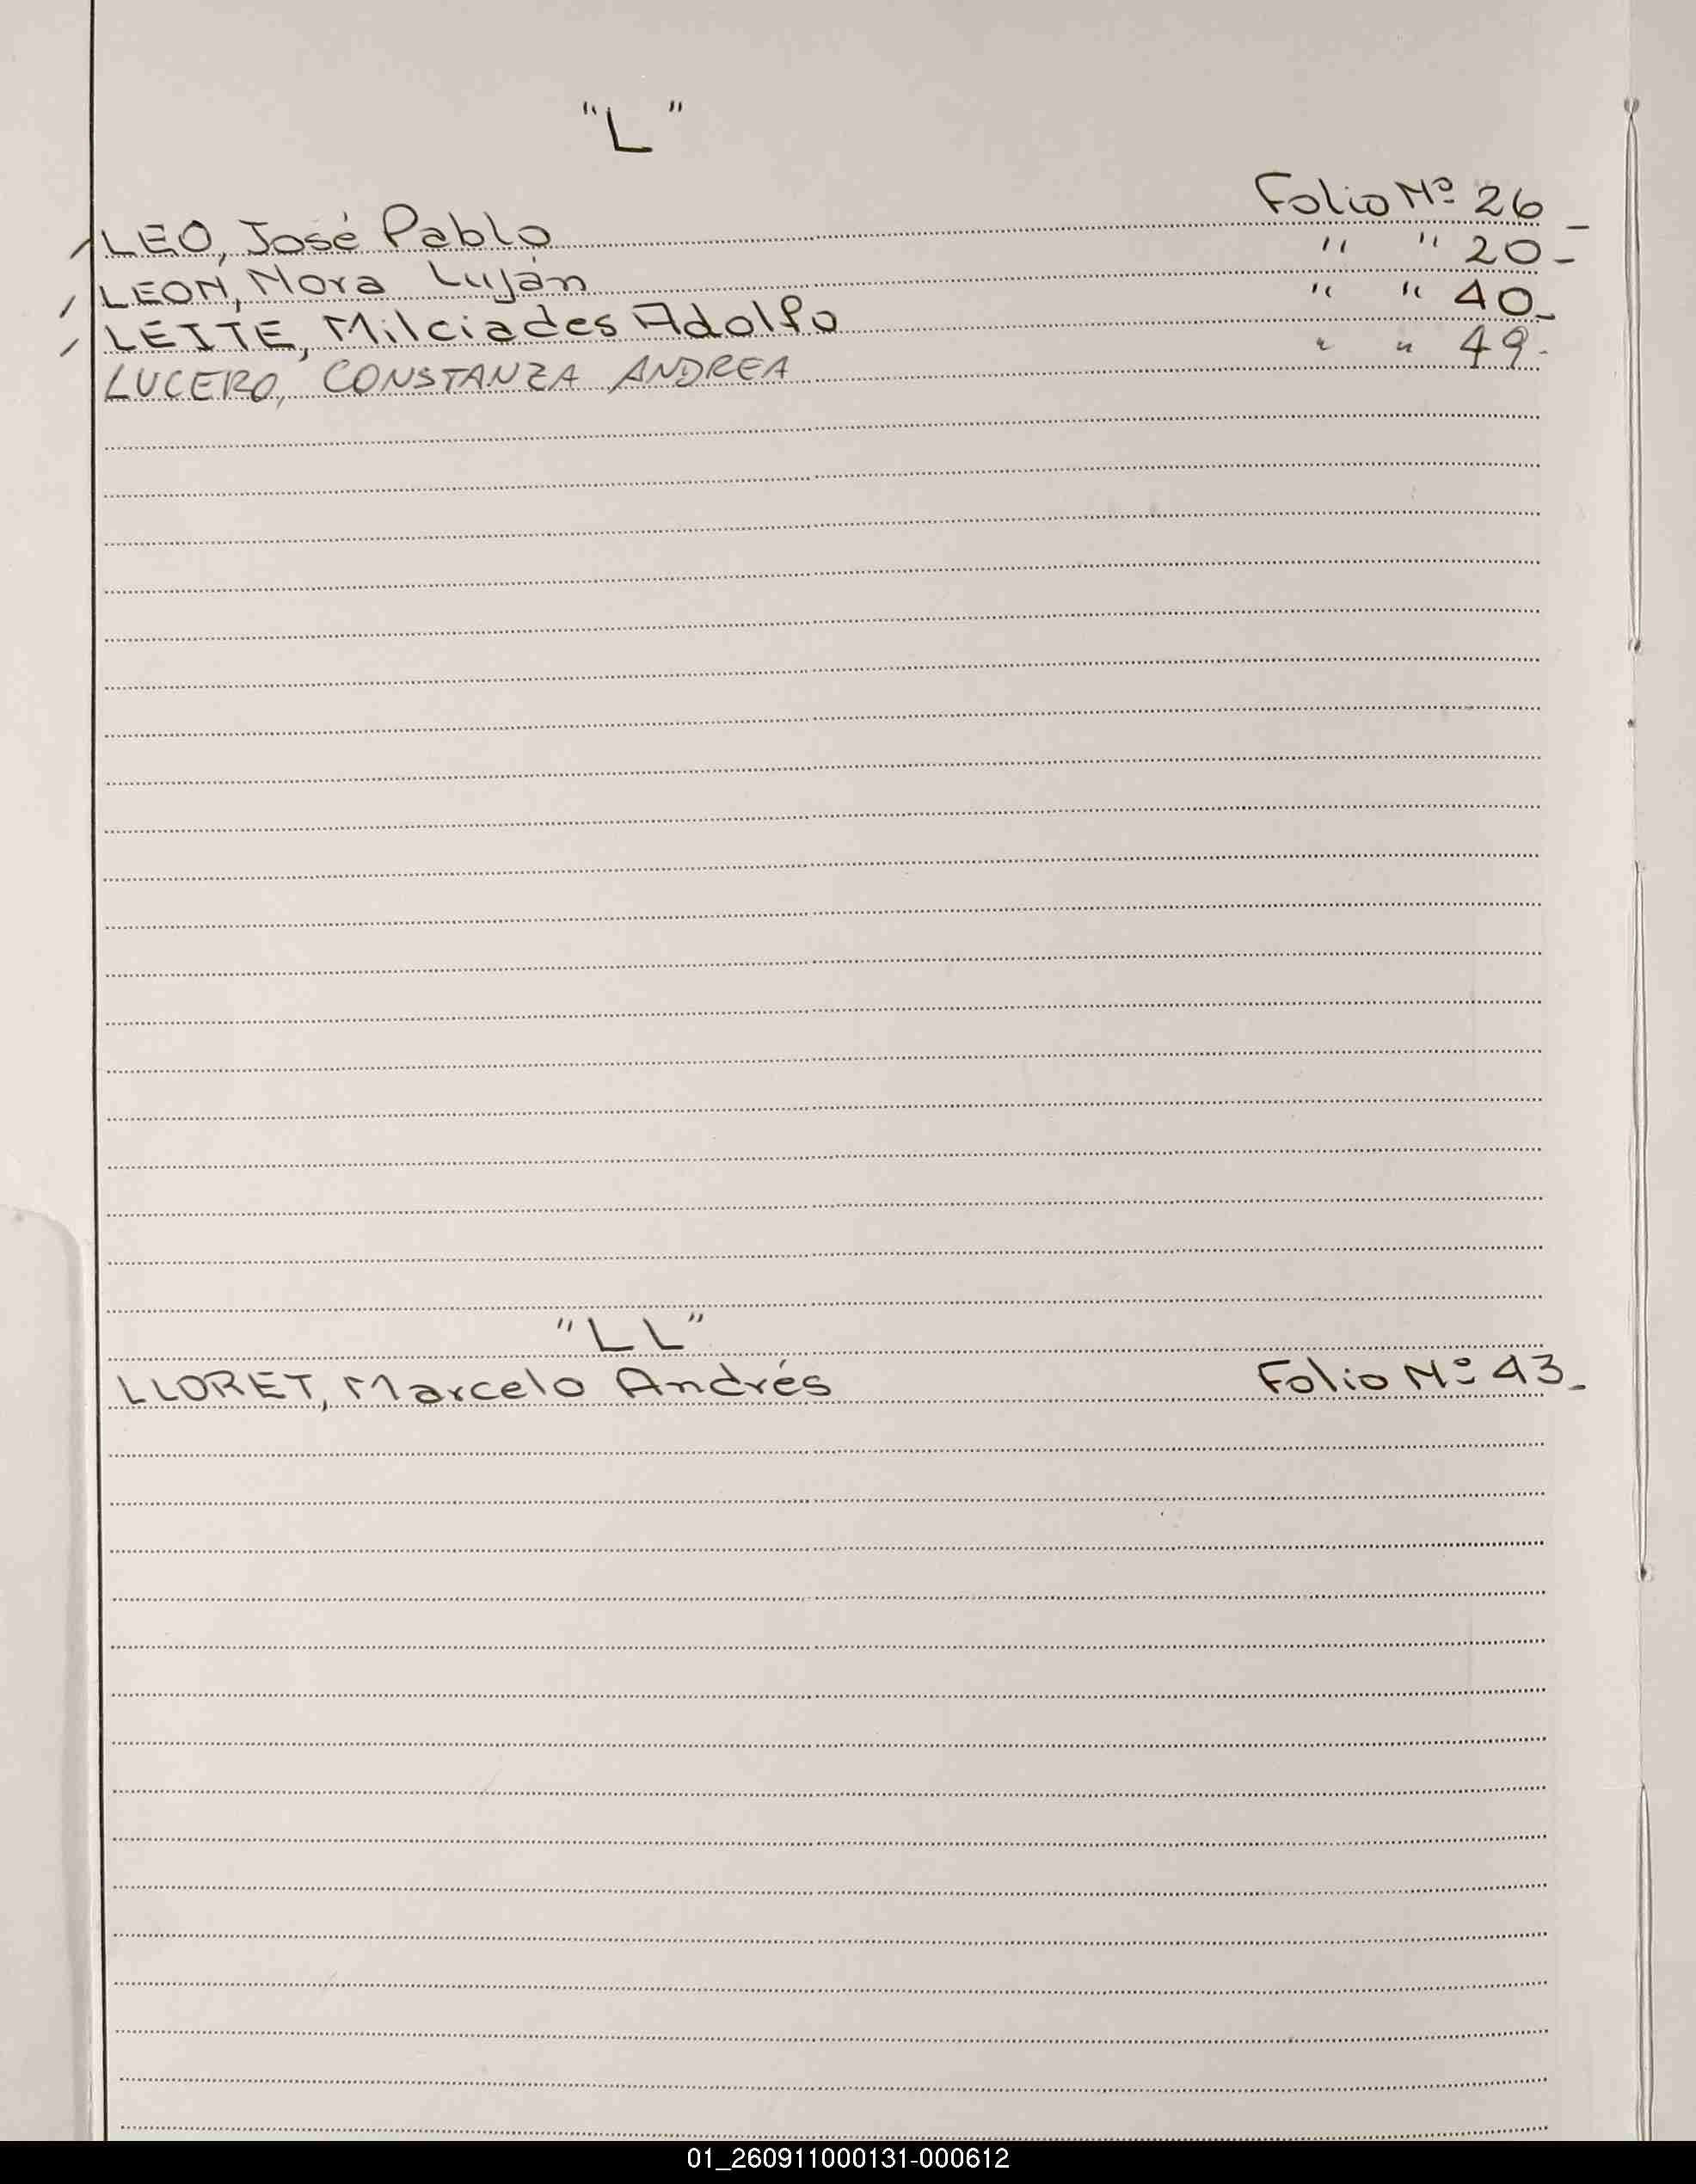 "L"
LEO, José Pablo Folio Nº 26_
LEON, Nora Luján " " 20_
LEITE, Milciades Adolfo " " 40_
LUCERO, CONSTANZA ANDREA " " 49-
"LL"
LLORET, Marcelo Andrés Folio Nº 43_
01_260911000131-000612